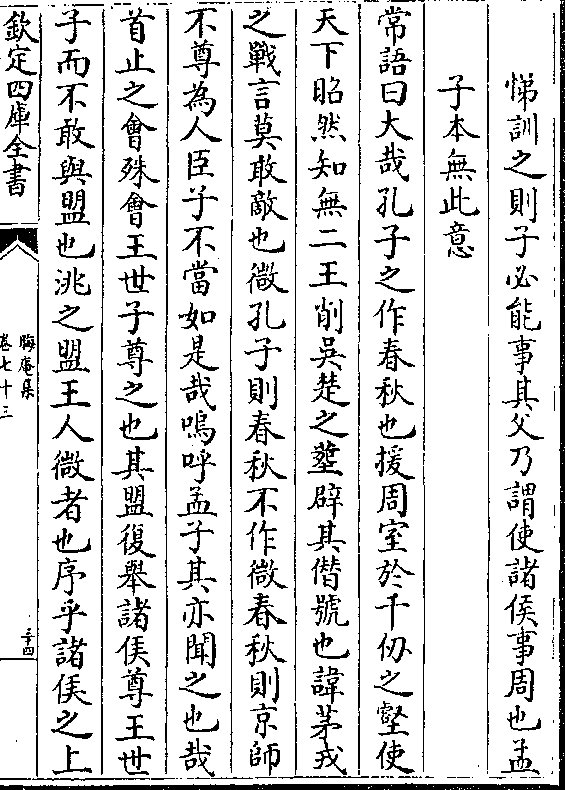 悌訓之則子必能事其父乃謂使諸侯事周也孟
子本無此意
常語曰大哉孔子之作春秋也援周室於千仞之壑使
天下昭然知無二王削吳楚之葬辟其僭號也諱茅戎
之戰言莫敢敵也微孔子則春秋不作微春秋則京師
不尊為人臣子不當如是哉嗚呼孟子其亦聞之也哉
首止之會殊會王世子尊之也其盟復舉諸侯尊王世
子而不敢與盟也洮之盟王人微者也序乎諸侯之上
欽定四庫全書
晦庵集
卷七十三
三四